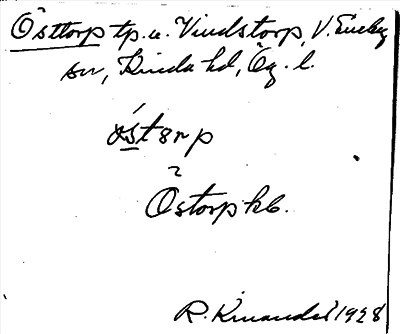 Östtorp tp. u. Vindstorp, V. Eneby
sn, Kinda hd, Ög. l.
östorp
Östorp kb.
R. Kinander 1928